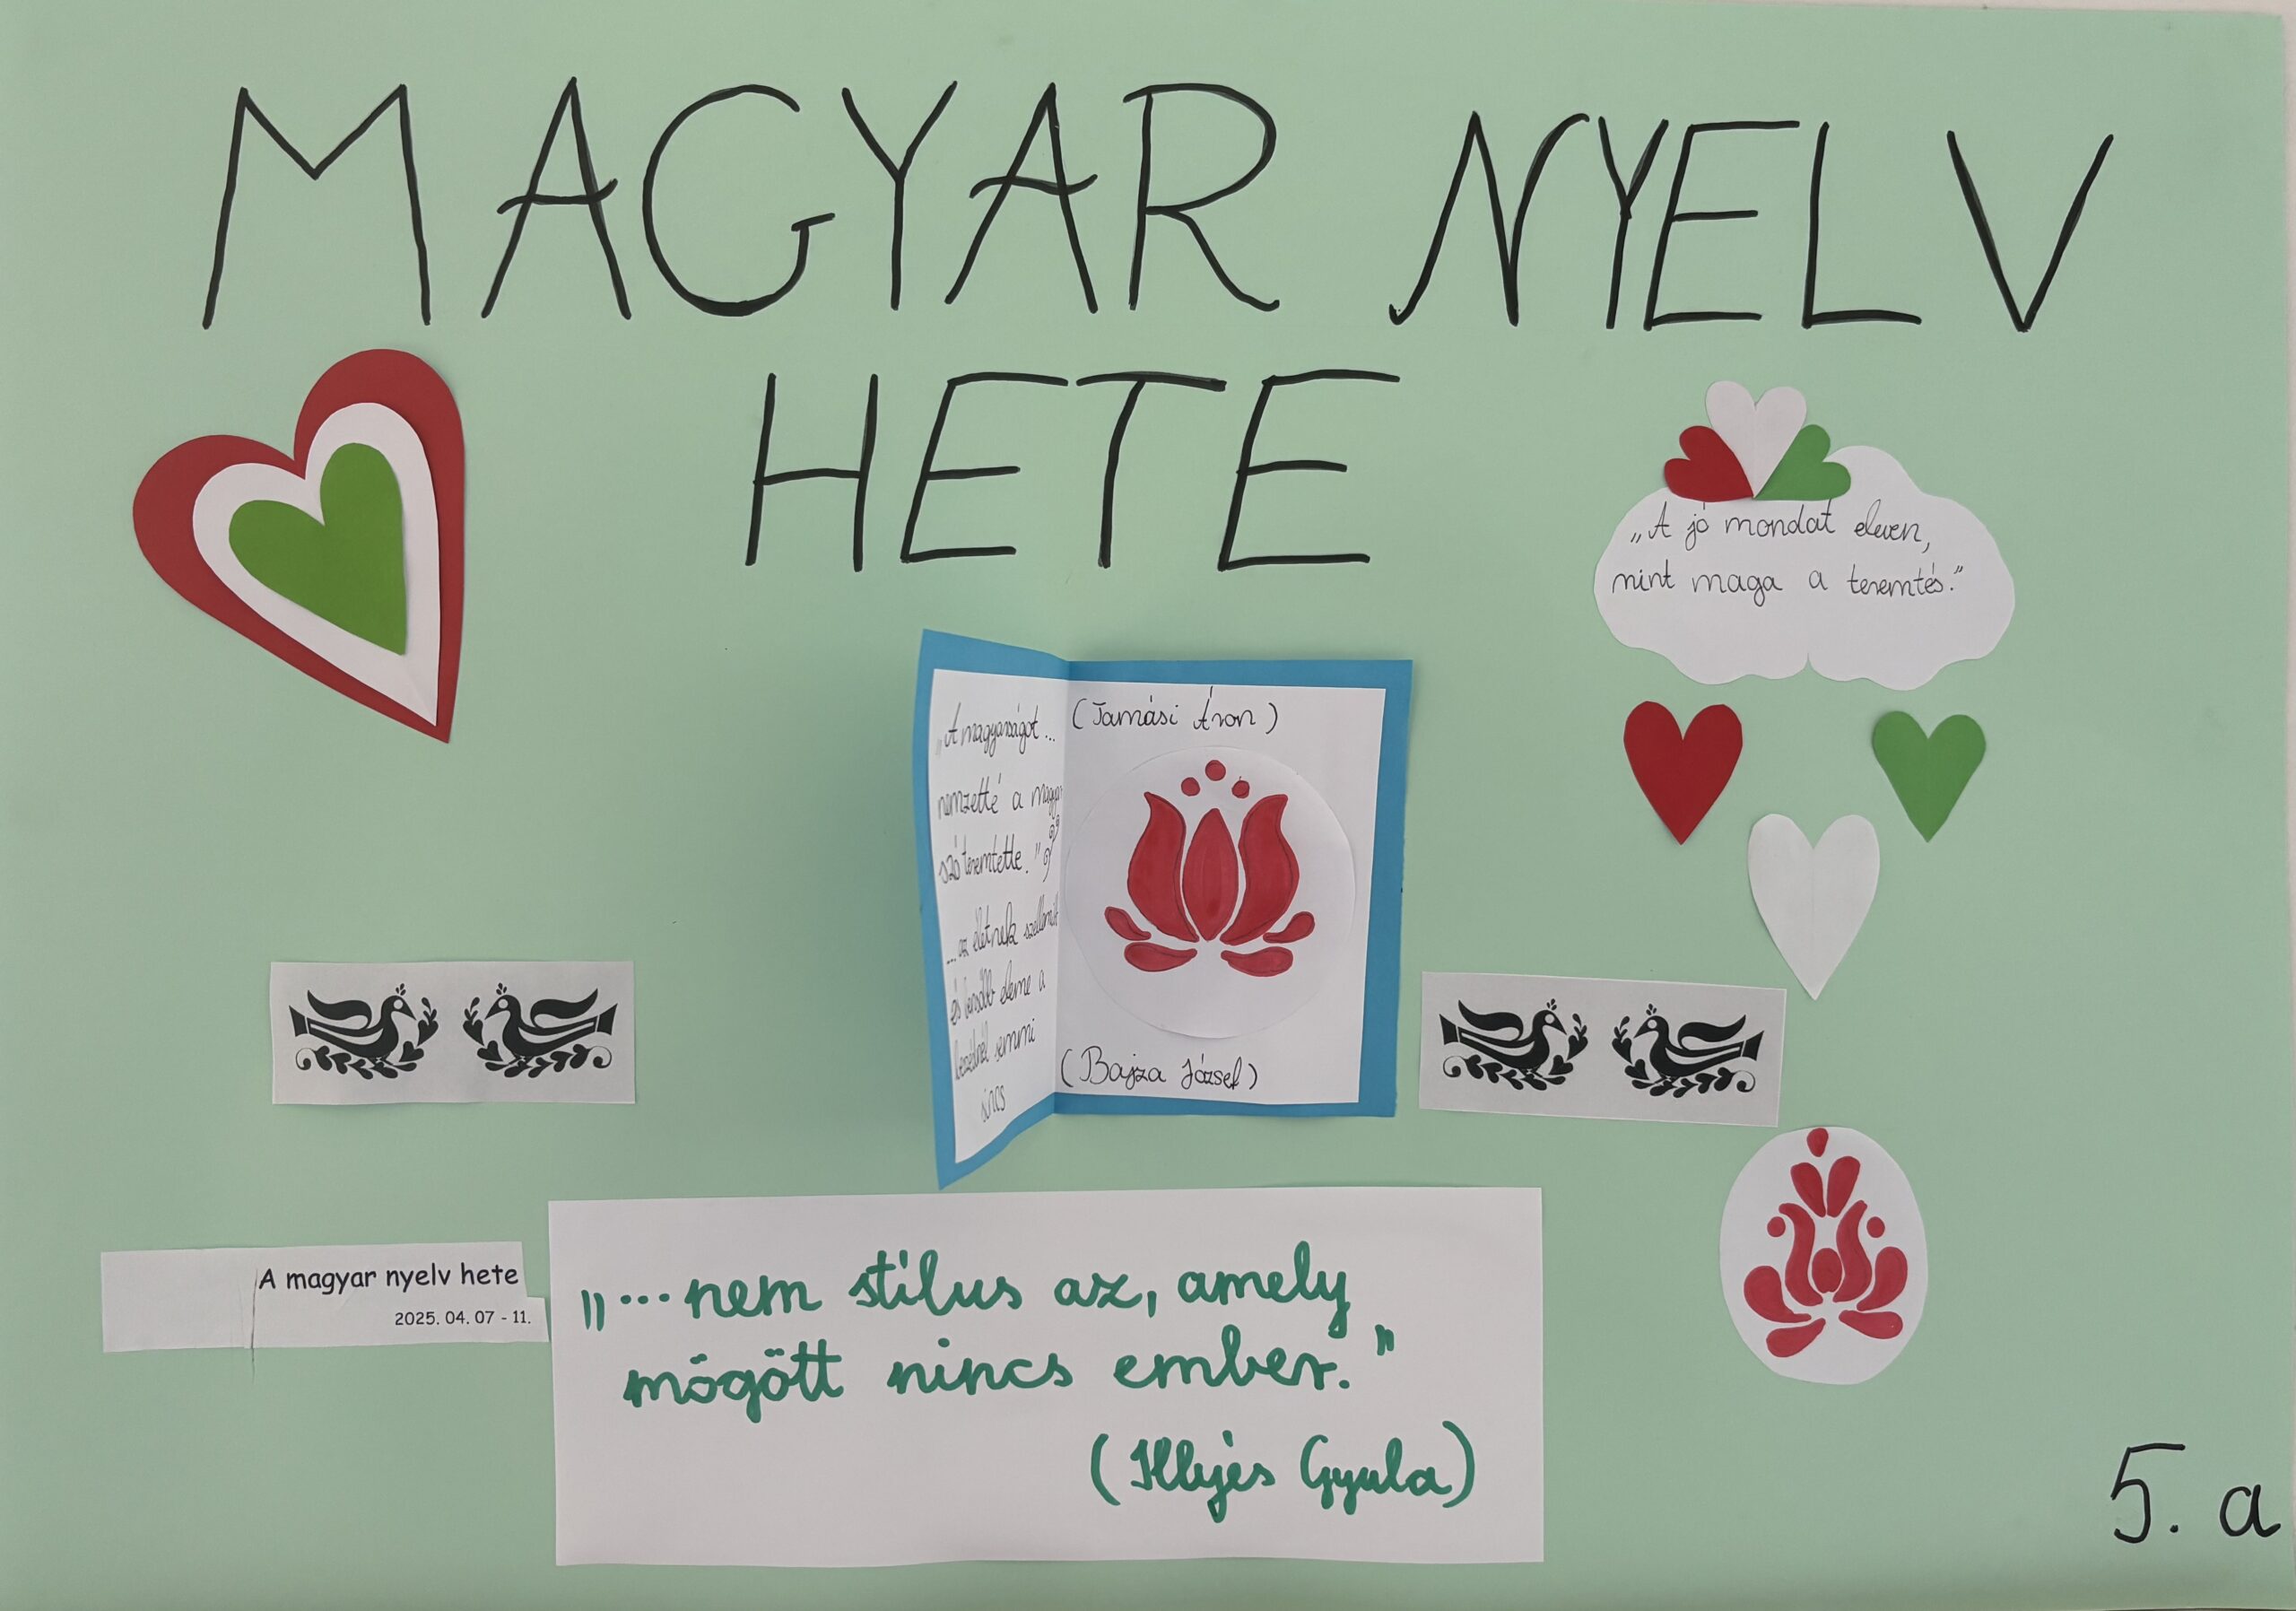 MAGYAR NYELV
HETE
„A jó mondat eleven,
mint maga a teremtés."
„A magyarságot ...
nemzetté a magyar
szó teremtette."
(Tamási Áron)
... az életnek szellemibb
és becsesb eleme a
beszédnél semmi
sincs
(Bajza József)
A magyar nyelv hete
2025. 04. 07 - 11.
„... nem stílus az, amely
mögött nincs ember."
(Illyés Gyula)
5. a